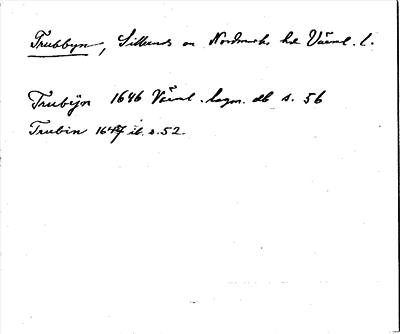 Trubbyn, Sillerud sn Nordmarks hd Värml. l.
Trubijn 1646 Värml. lagm. db s. 56
Trubin 1647 ib. s. 52.